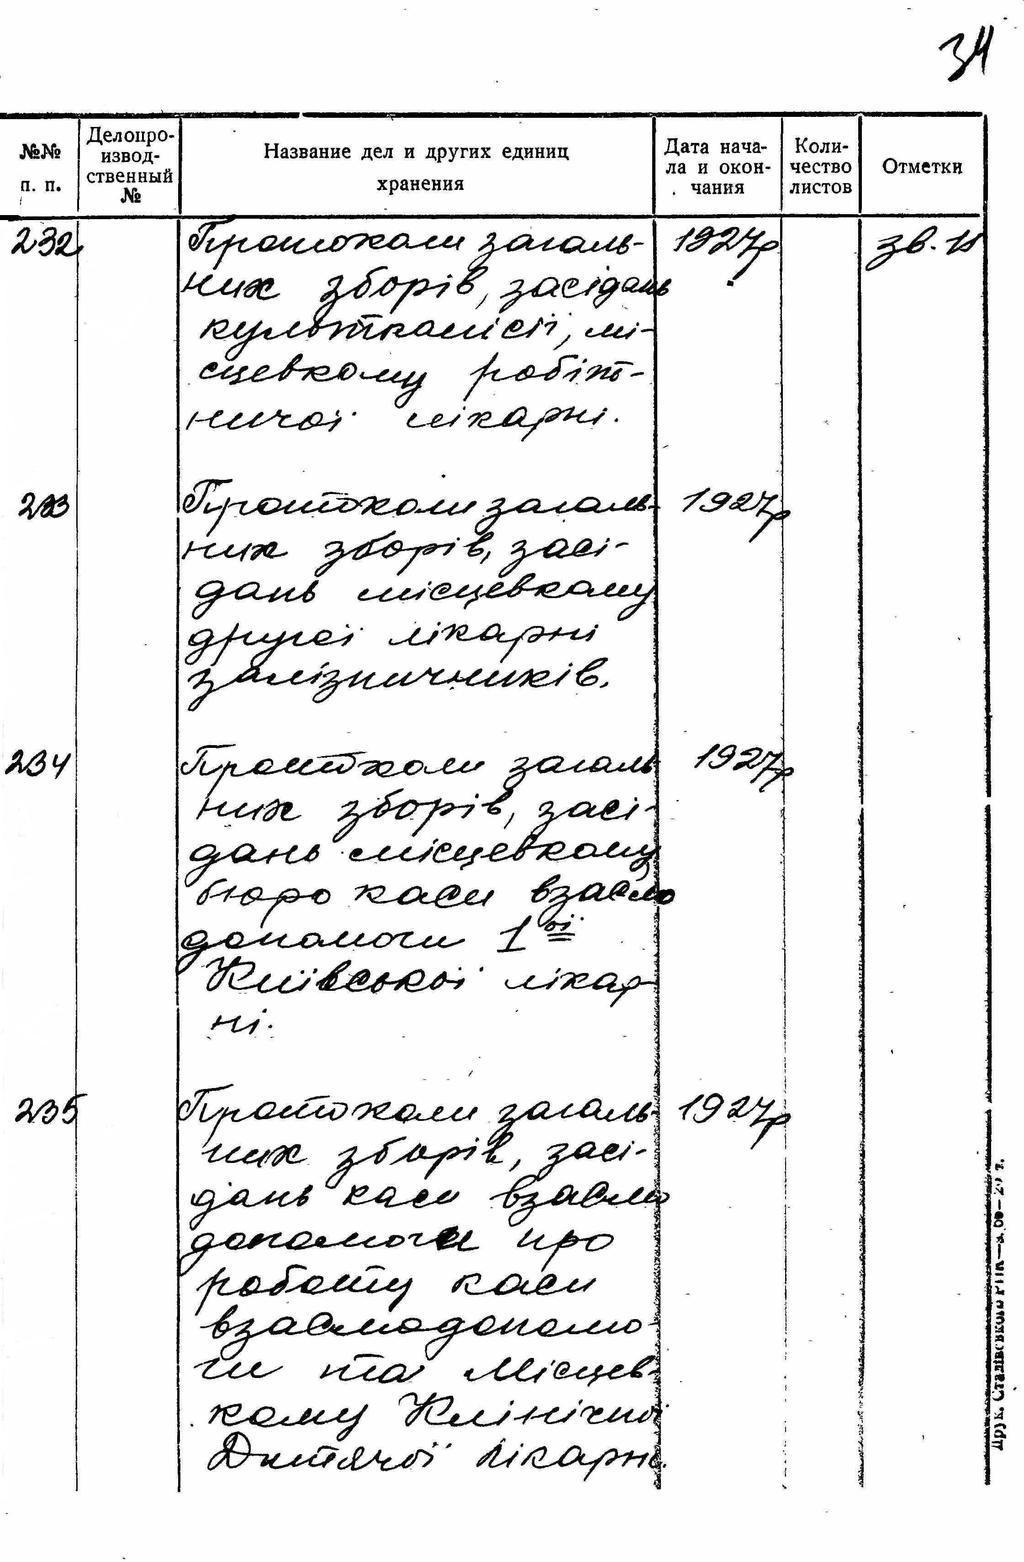 34
№№ п. п.
Делопроизводственный №
Название дел и других единиц хранения
Дата начала и окончания
Количество листов
Отметки
232 Протоколи загаль- 1927р
них зборів, засідань
культкомісії, мі-
сцевкому робіт-
ничої лікарні.
233 Протоколи загаль- 1927р
них зборів, засі-
дань місцевкому
другої лікарні
залізничників.
234 Протоколи загаль 1927р
них зборів, засі-
дань місцевкому
бюро каси взаємо
допомоги 1ої
Київської лікар
ні.
235 Протоколи загаль- 1927р
них зборів, засі-
дань каси взаємо
допомоги про
роботу каси
взаємодопомо
ги та Місцев-
кому Клінічної
Дитячої лікарні.
Друк. Сталінського